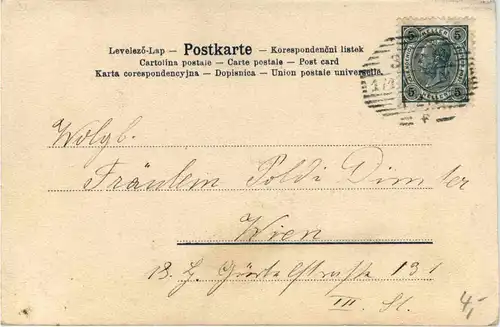 Levelező-Lap — Postkarte — Korespondenční lístek
Cartolina postale — Carte postale — Post card
Karta corespondencyjna — Dopisnica — Union postale universelle
5 5
5 5
Wolgb.
Fräulein Poldi Dimter
Wien
18. Z. Gürtelstrasse 131
III. St.
4,-